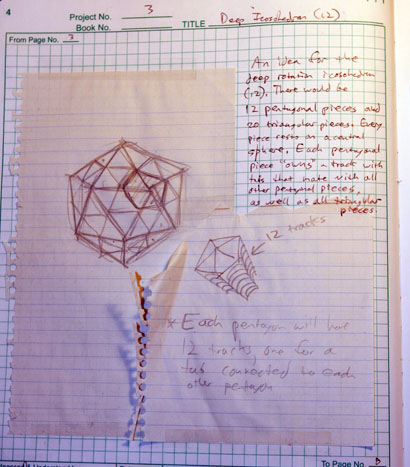 4
Project No. 3
Book No.
TITLE Deep Icosohedron (12)
From Page No. 3
An idea for the
deep rotation icosohedron
(12). There would be
12 pentagonal pieces and
20 triangular pieces. Every
piece rests on a central
sphere. Each pentagonal
piece "owns" a track with
tabs that mate with all
other pentagonal pieces,
as well as all triangular
pieces.
12 tracks
* Each pentagon will have
12 tracks, one for a
tab connected to each
other pentagon
To Page No.